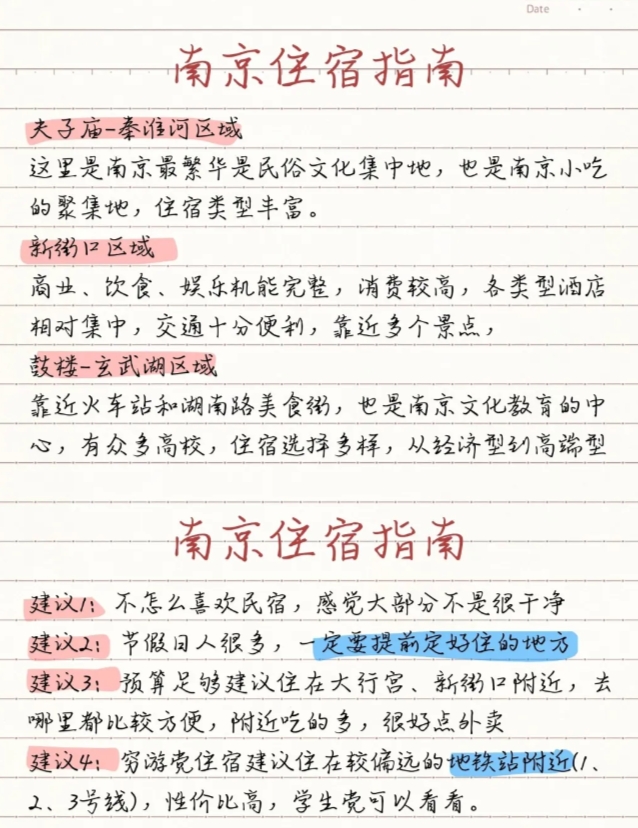 Date
南京住宿指南
夫子庙-秦淮河区域
这里是南京最繁华是民俗文化集中地，也是南京小吃
的聚集地，住宿类型丰富。
新街口区域
商业、饮食、娱乐机能完整，消费较高，各类型酒店
相对集中，交通十分便利，靠近多个景点，
鼓楼-玄武湖区域
靠近火车站和湖南路美食街，也是南京文化教育的中
心，有众多高校，住宿选择多样，从经济型到高端型
南京住宿指南
建议1：不怎么喜欢民宿，感觉大部分不是很干净
建议2：节假日人很多，一定要提前定好住的地方
建议3：预算足够建议住在大行宫、新街口附近，去
哪里都比较方便，附近吃的多，很好点外卖
建议4：穷游党住宿建议住在较偏远的地铁站附近(1、
2、3号线)，性价比高，学生党可以看看。